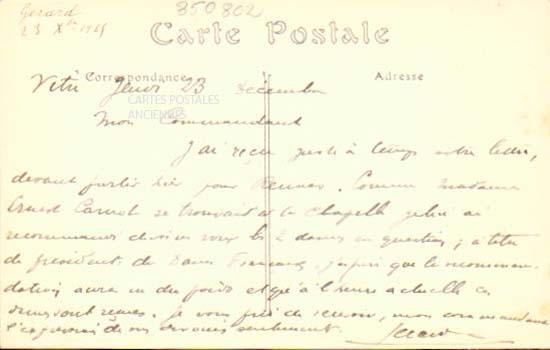 Gerard
23 Xbre 1915
350802
Carte Postale
Correspondance
Adresse
Vitré Jeudi 23 Décembre
CARTES POSTALES
ANCIENNES
Mon Commandant
J'ai reçu juste à temps votre lettre,
devant partir hier pour Rennes. Comme Madame
Ernest Carnot se trouvait à la Chapelle je lui ai
recommandé de vive voix les 2 dames en question, à titre
de présidente de Dames Françaises. J'espère que la recomman-
dation aura eu du poids et qu'à l'heure actuelle ces
dames sont reçues. Je vous prie de recevoir, mon commandant
l'expression de mes dévoués sentiments. Gerard